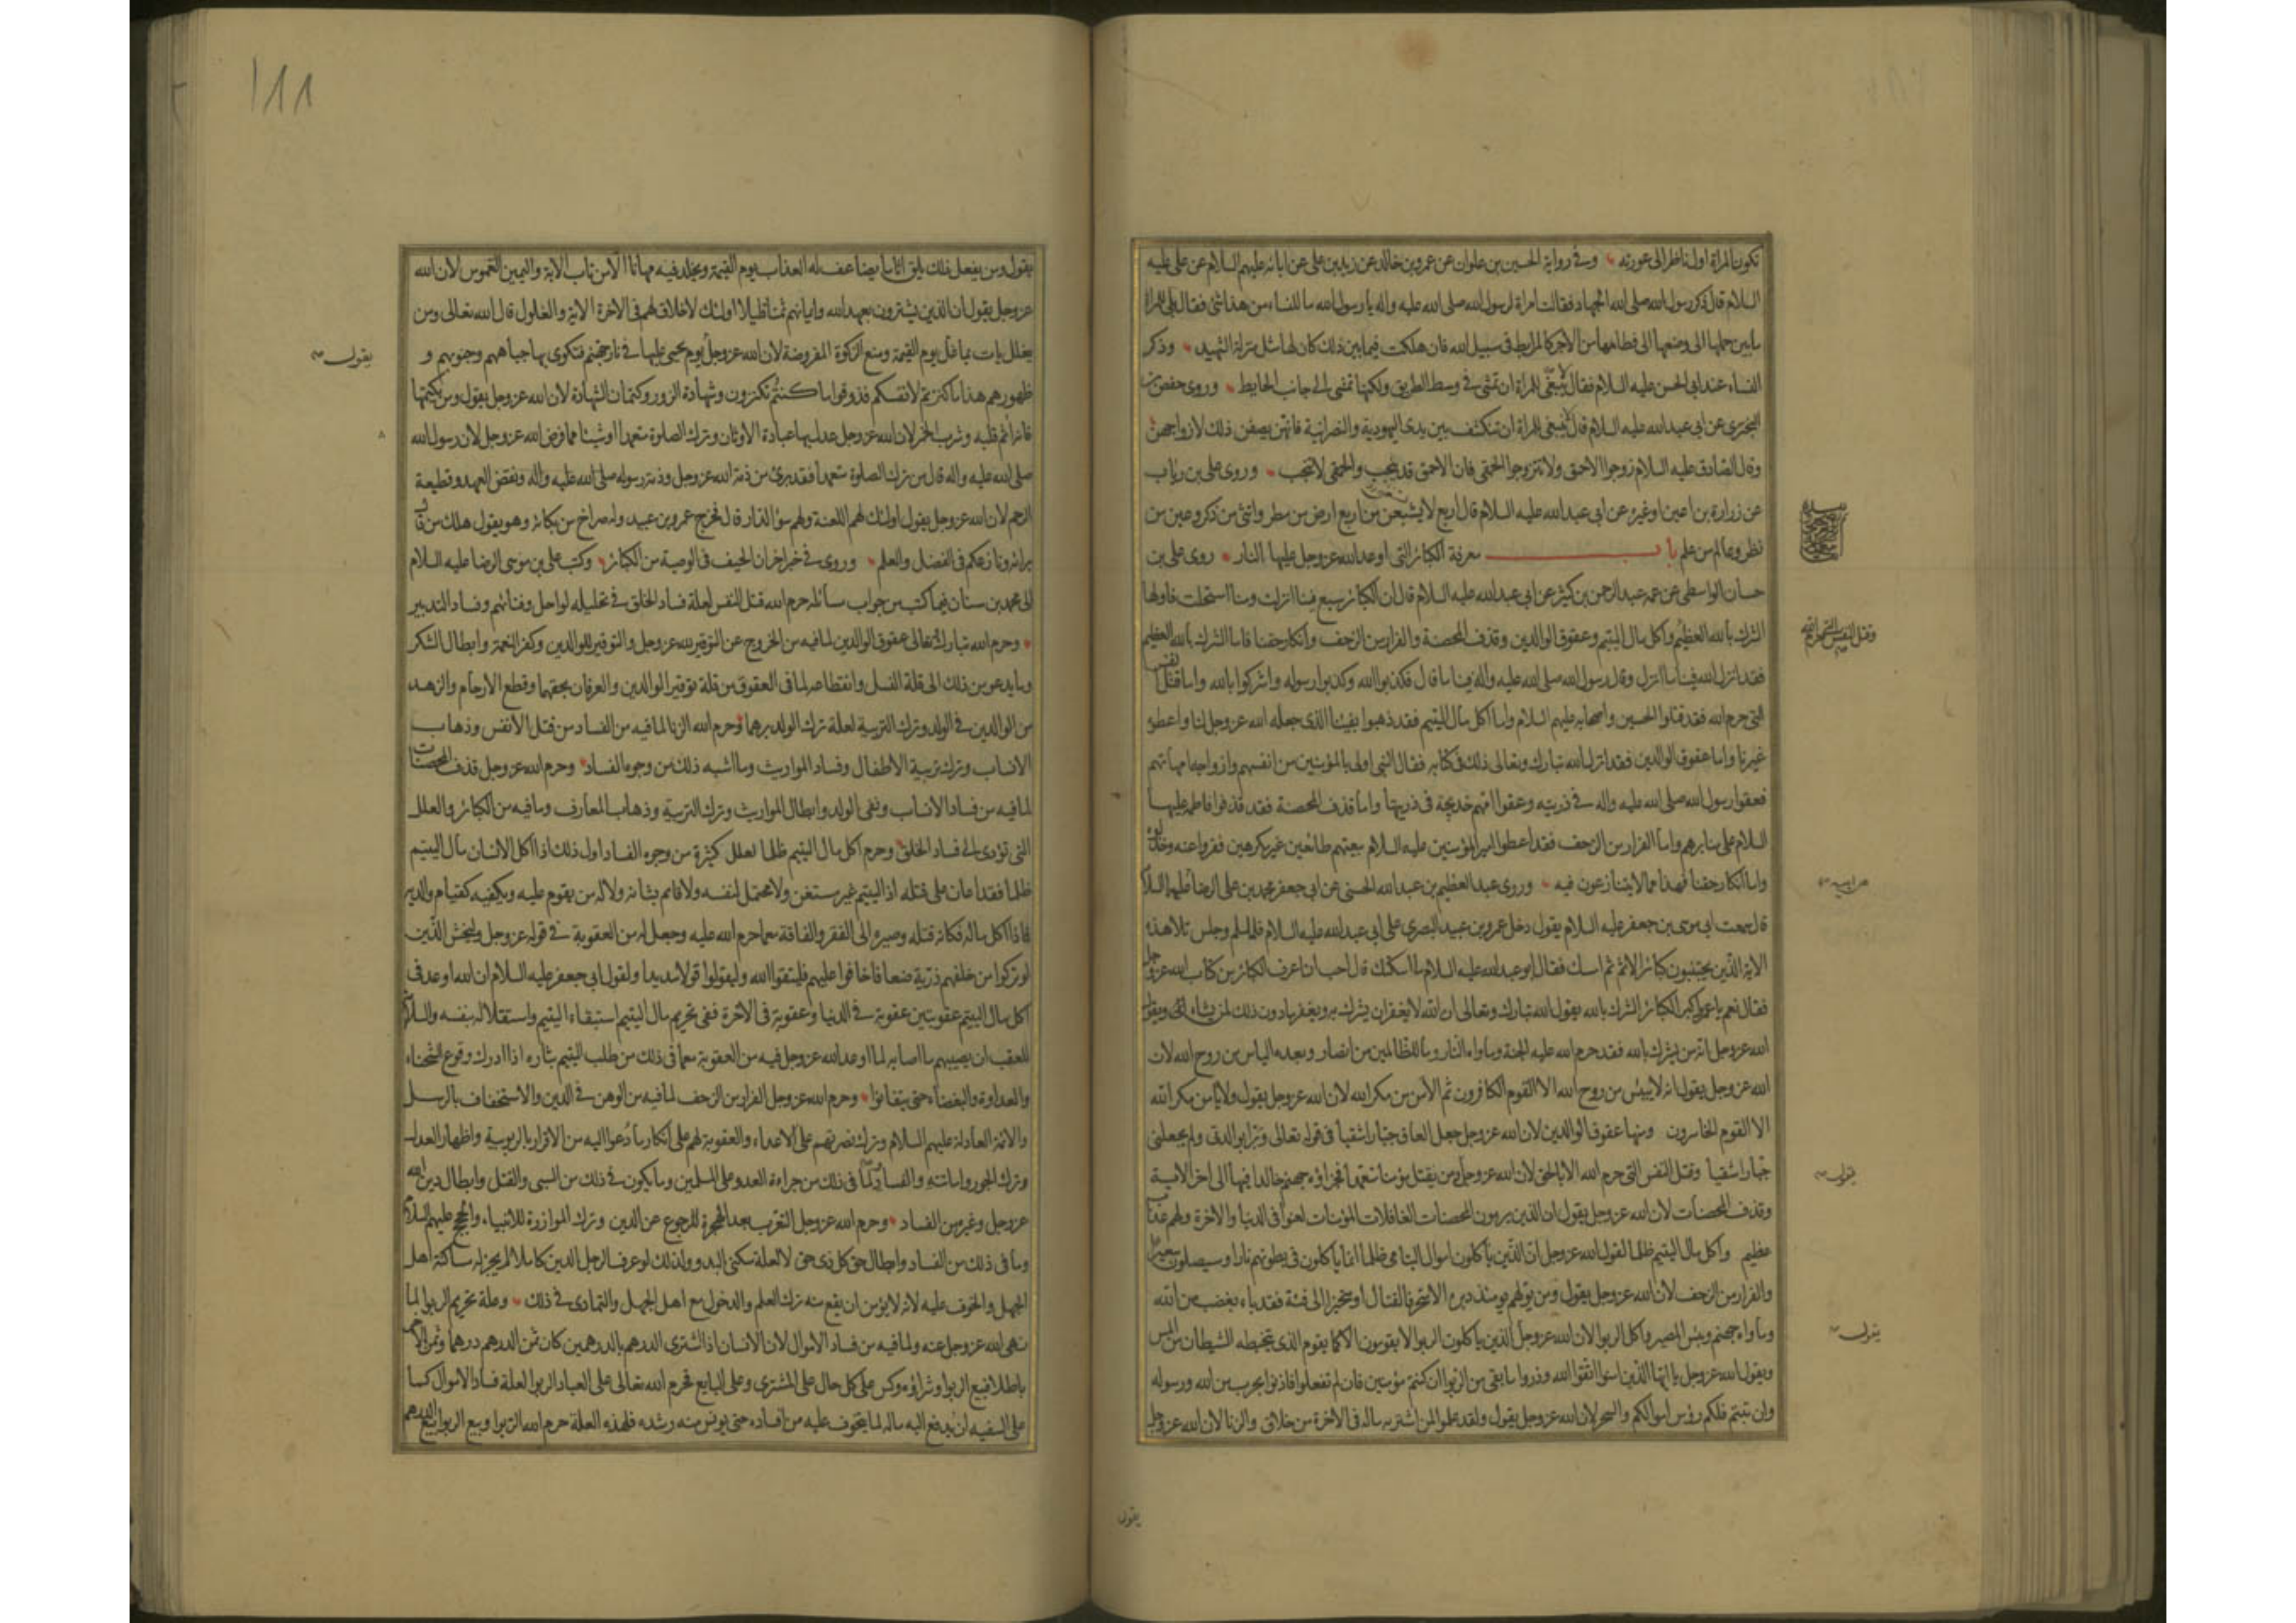 تكون المراة اول ناظر الى عورته وفي رواية الحسين بن علوان عن عمرو بن خالد عن زيد بن علي عن ابائه عليهم السلام عن علي عليه
السلام قال ذكر رسول الله صلى الله الجهاد فقالت امراة لرسول الله صلى الله عليه واله يا رسول الله ما للنساء من هذا شئ فقال بلى للمراة
ما بين حملها الى وضعها الى فطامها من الاجر كالمرابط في سبيل الله فان هلكت فيما بين ذلك كان لها مثل منزلة الشهيد وذكر
النساء عند ابي الحسن عليه السلام فقال لا ينبغي للمراة ان تمشي في وسط الطريق ولكنها تمشي الى جانب الحايط وروى حفص بن
البختري عن ابي عبد الله عليه السلام قال لا ينبغي للمراة ان تنكشف بين يدى اليهودية والنصرانية فانهن يصفن ذلك لازواجهن
وقال الصادق عليه السلام زوجوا الاحمق ولا تزوجوا الحمقى فان الاحمق قد ينجب والحمقى لا تنجب وروى علي بن رياب
عن زرارة بن اعين او غيره عن ابي عبد الله عليه السلام قال اربع لا يشبعن من اربع ارض من مطر وانثى من ذكر وعين من
نظر وعالم من علم باب معرفة الكبائر التي اوعد الله عز وجل عليها النار روى علي بن
حسان الواسطي عن عمه عبد الرحمن بن كثير عن ابي عبد الله عليه السلام قال ان الكبائر سبع فينا انزلت ومنا استحلت فاولها
الشرك بالله العظيم واكل مال اليتيم وعقوق الوالدين وقذف المحصنة والفرار من الزحف وانكار حقنا فاما الشرك بالله العظيم
وقتل النفس التي حرم الله
فقد انزل الله فينا ما انزل وقال رسول الله صلى الله عليه واله فينا ما قال فكذبوا الله وكذبوا رسوله واشركوا بالله واما قتل النفس
التي حرم الله فقد قتلوا الحسين واصحابه عليهم السلام واما اكل مال اليتيم فقد ذهبوا بفيئنا الذى جعله الله عز وجل لنا واعطوه
غيرنا واما عقوق الوالدين فقد انزل الله تبارك وتعالى ذلك في كتابه فقال النبي اولى بالمؤمنين من انفسهم وازواجه امهاتهم
فعقوا رسول الله صلى الله عليه واله في ذريته وعقوا امهم خديجة في ذريتها واما قذف المحصنة فقد قذفوا فاطمة عليها
السلام على منابرهم واما الفرار من الزحف فقد اعطوا امير المؤمنين عليه السلام بيعتهم طائعين غير مكرهين ففروا عنه وخذلوه
واما انكار حقنا فهذا مما لا يتنازعون فيه وروى عبد العظيم بن عبد الله الحسني عن ابي جعفر محمد بن علي الرضا عليهما السلام
عن ابيه
قال سمعت ابي موسى بن جعفر عليه السلام يقول دخل عمرو بن عبيد البصري على ابي عبد الله عليه السلام فلما سلم وجلس تلا هذه
الاية الذين يجتنبون كبائر الاثم ثم امسك فقال ابو عبد الله عليه السلام ما اسكتك قال احب ان اعرف الكبائر من كتاب الله عز وجل
فقال نعم يا عمرو اكبر الكبائر الشرك بالله يقول الله تبارك وتعالى ان الله لا يغفر ان يشرك به ويغفر ما دون ذلك لمن يشاء ويقول
الله عز وجل انه من يشرك بالله فقد حرم الله عليه الجنة وماواه النار وما للظالمين من انصار وبعده الياس من روح الله لان
الله عز وجل يقول انه لا ييئس من روح الله الا القوم الكافرون ثم الامن من مكر الله لان الله عز وجل يقول ولا يامن مكر الله
الا القوم الخاسرون ومنها عقوق الوالدين لان الله عز وجل جعل العاق جبارا شقيا في قوله تعالى وبرا بوالدتي ولم يجعلني
جبارا شقيا وقتل النفس التي حرم الله الا بالحق لان الله عز وجل ومن يقتل مؤمنا متعمدا فجزاؤه جهنم خالدا فيها الى اخر الاية
يقول
وقذف المحصنات لان الله عز وجل يقول ان الذين يرمون المحصنات الغافلات المؤمنات لعنوا في الدنيا والاخرة ولهم عذاب
عظيم واكل مال اليتيم ظلما لقول الله عز وجل ان الذين ياكلون اموال اليتامى ظلما انما ياكلون في بطونهم نارا وسيصلون سعيرا
والفرار من الزحف لان الله عز وجل يقول ومن يولهم يومئذ دبره الا متحرفا لقتال او متحيزا الى فئة فقد باء بغضب من الله
وماواه جهنم وبئس المصير واكل الربوا لان الله عز وجل الذين ياكلون الربوا لا يقومون الا كما يقوم الذى يتخبطه الشيطان من المس
يقول
ويقول الله عز وجل يا ايها الذين امنوا اتقوا الله وذروا ما بقي من الربوا ان كنتم مؤمنين فان لم تفعلوا فاذنوا بحرب من الله ورسوله
وان تبتم فلكم رؤس اموالكم والسحر لان الله عز وجل يقول ولقد علموا لمن اشتريه ماله في الاخرة من خلاق والزنا لان الله عز وجل
يقول
111
يقول ومن يفعل ذلك يلق اثاما يضاعف له العذاب يوم القيمة ويخلد فيه مهانا الا من تاب الاية واليمين الغموس لان الله
عز وجل يقول ان الذين يشترون بعهد الله وايمانهم ثمنا قليلا اولئك لا خلاق لهم في الاخرة الاية والغلول قال الله تعالى ومن
يغلل يات بما غل يوم القيمة ومنع الزكوة المفروضة لان الله عز وجل يوم يحمى عليها في نار جهنم فتكوى بها جباههم وجنوبهم و
يقول
ظهورهم هذا ما كنزتم لانفسكم فذوقوا ما كنتم تكنزون وشهادة الزور وكتمان الشهادة لان الله عز وجل يقول ومن يكتمها
فانه اثم قلبه وشرب الخمر لان الله عز وجل عدل بها عبادة الاوثان وترك الصلوة متعمدا او شيئا مما فرض الله عز وجل لان رسول الله
صلى الله عليه واله قال من ترك الصلوة متعمدا فقد برئ من ذمة الله عز وجل وذمة رسوله صلى الله عليه واله ونقض العهد وقطيعة
الرحم لان الله عز وجل يقول اولئك لهم اللعنة ولهم سؤ الدار قال فخرج عمرو بن عبيد وله صراخ من بكائه وهو يقول هلك من قال
برايه ونازعكم في الفضل والعلم وروى في خبر اخر ان الحيف في الوصية من الكبائر وكتب علي بن موسى الرضا عليه السلام
الى محمد بن سنان فيما كتب من جواب مسائله حرم الله قتل النفس لعلة فساد الخلق في تحليله لو احل وفنائهم وفساد التدبير
وحرم الله تبارك وتعالى عقوق الوالدين لما فيه من الخروج عن التوقير لله عز وجل والتوقير للوالدين وكفر النعمة وابطال الشكر
وما يدعو من ذلك الى قلة النسل وانقطاعه لما في العقوق من قلة توقير الوالدين والعرفان بحقهما وقطع الارحام والزهد
من الوالدين في الولد وترك التربية لعلة ترك الولد برهما وحرم الله الزنا لما فيه من الفساد من قتل الانفس وذهاب
الانساب وترك تربية الاطفال وفساد المواريث وما اشبه ذلك من وجوه الفساد وحرم الله عز وجل قذف المحصنات
لما فيه من فساد الانساب ونفى الولد وابطال المواريث وترك التربية وذهاب المعارف وما فيه من الكبائر والعلل
التي تؤدى الى فساد الخلق وحرم اكل مال اليتيم ظلما لعلل كثيرة من وجوه الفساد اول ذلك اذا اكل الانسان مال اليتيم
ظلما فقد اعان على قتله اذ اليتيم غير مستغن ولا محتمل لنفسه ولا قائم بشانه ولا له من يقوم عليه ويكفيه كقيام والديه
فاذا اكل ماله فكانه قتله وصيره الى الفقر والفاقة مع ما حرم الله عليه وجعل له من العقوبة في قوله عز وجل وليخش الذين
لو تركوا من خلفهم ذرية ضعافا خافوا عليهم فليتقوا الله وليقولوا قولا سديدا ولقول ابي جعفر عليه السلام ان الله اوعد في
اكل مال اليتيم عقوبتين عقوبة في الدنيا وعقوبة في الاخرة ففي تحريم مال اليتيم استبقاء اليتيم واستقلاله بنفسه والسلامة
للعقب ان يصيبهم ما اصابه لما اوعد الله عز وجل فيه من العقوبة مع ما في ذلك من طلب اليتيم بثاره اذا ادرك وقوع الشحناء
والعداوة والبغضاء حتى يتفانوا وحرم الله عز وجل الفرار من الزحف لما فيه من الوهن في الدين والاستخفاف بالرسل
والائمة العادلة عليهم السلام وترك نصرتهم على الاعداء والعقوبة لهم على انكار ما دعوا اليه من الاقرار بالربوبية واظهار العدل
وترك الجور واماتته والفساد لما في ذلك من جراءة العدو على المسلمين وما يكون في ذلك من السبى والقتل وابطال دين الله
عز وجل وغيره من الفساد وحرم الله عز وجل التعرب بعد الهجرة للرجوع عن الدين وترك الموازرة للانبياء والحجج عليهم السلام
وما في ذلك من الفساد وابطال حق كل ذى حق لا لعلة سكنى البدو ولذلك لو عرف الرجل الدين كاملا لم يجز له مساكنة اهل
الجهل والخوف عليه لانه لا يؤمن ان يقع منه ترك العلم والدخول مع اهل الجهل والتمادى في ذلك وعلة تحريم الربوا لما
نهى الله عز وجل عنه ولما فيه من فساد الاموال لان الانسان اذا اشترى الدرهم بالدرهمين كان ثمن الدرهم درهما وثمن الاخر
باطلا فبيع الربوا وشراؤه وكس على كل حال على المشترى وعلى البايع فحرم الله تعالى على العباد الربوا لعلة فساد الاموال كما
على السفيه ان يدفع اليه ماله لما يتخوف عليه من افساده حتى يونس منه رشده فلهذه العلة حرم الله الربوا وبيع الربوا بيع الدرهم